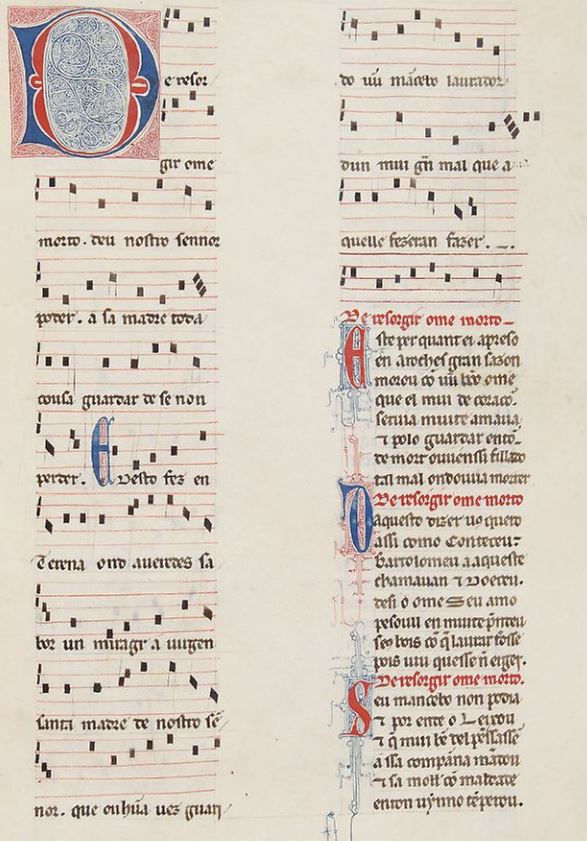 De resor
gir ome
morto. deu nostro sennor
poder. a sa madre toda
cousa guardar de se non
perder. E desto fez en
Terena ond aueredes sa
bor un miragr a uirgen
santa madre de nostro se
nor. que ouhũa uez
do un mãcebo laurador
dun mui grã mal que a
quelle fezeran fazer.
De resorgir ome morto
Este per quant ei apreso
en aroches gran sazon
morou cõ un bõo ome
que el mui de coraçõ
seruia muite amaua
⁊ polo guardar entõ
de mort ouuenssi fillado
tal mal ond ouuia morrer
De resorgir ome morto
Daquesto dizer uo quero
assi como
Bartolomeu a aqueste
chamauan ⁊
desi o ome seu amo
en muit
seꝯ bois cõ q̃ laurar fosse
pois uiu
De resorgir ome morto.
Seu mancebo non podia
⁊ por ende o leixou
⁊ q̃ mui bẽ del pẽssasse
a ssa compãna mãdou
⁊ sa moller cõ maldade
enton